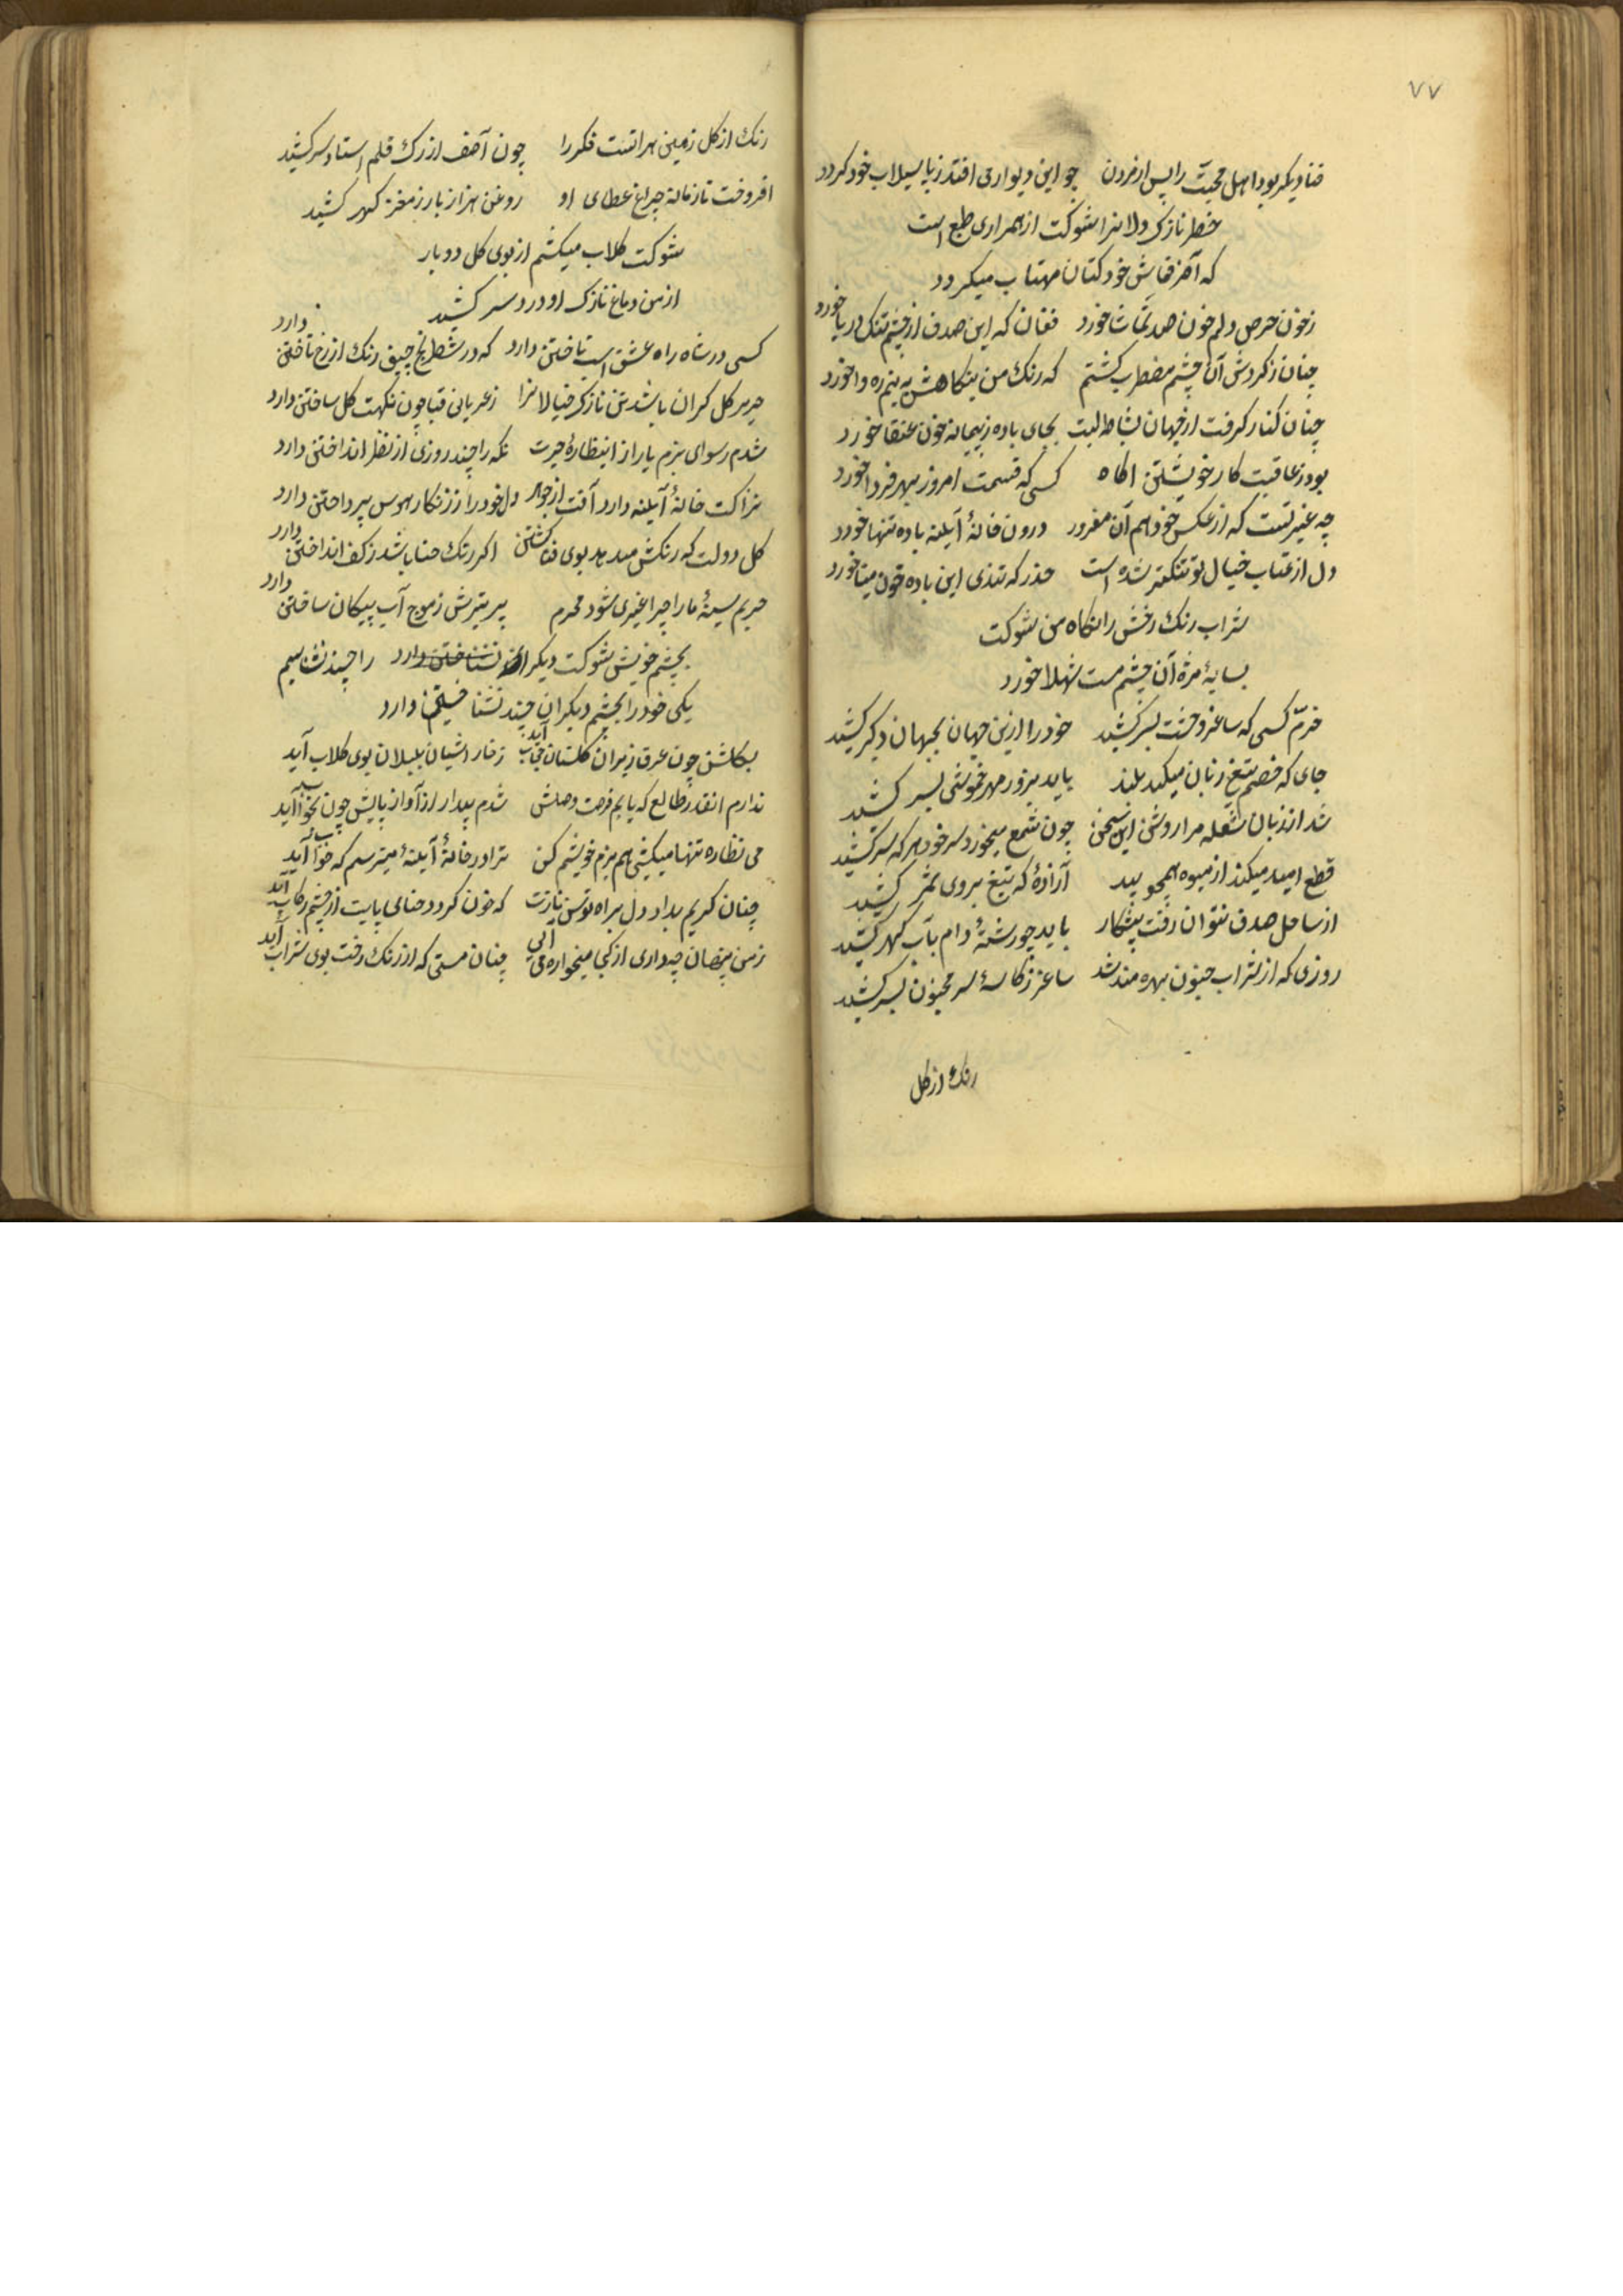 ۷۷
فنا دیگر بود اهل محبت را پس از مردن چو این دیوار می افتد ز پا سیلاب خود گردد
خطر نازک دلانرا شوکت از همراری طبع است
که آخر قماش خود کتان مهتاب میگردد
ز خون حرص دلم خون صد تماشا خورد فغان که این صدف از چشم تنک دریا خورد
چنان ز گردش آن چشم مضطرب گشتم که رنک من بنگاهش به نیم ره وا خورد
چنان کنار گرفت از جهان نشاط لبت بجای باده ز پیمانه خون عنقا خورد
بود ز عاقبت کار خویشتن اگاه کسی که قسمت امروز بهر فردا خورد
چه غیرتست که از عکس خود هم آن مغرور درون خانهٔ آینه باده تنها خورد
دل از عتاب خیال تو شده است حذر که تندی این باده خون مینا خورد
شراب رنک رخش را نکاه من شوکت
بسایهٔ مژهٔ آن چشم مست شهلا خورد
خرم کسی که ساغر وحشت بسر کشید خود را ازین جهان بجهان دگر کشید
جای که خصم تیغ زبان میکند بلند باید بزور مهر خموشی بسر کشید
شد از زبان شعله مرا روشن این سخن چون شمع میخورد سر خود هر که سر کشید
قطع امید میکند از میوه همچو بید آزادهٔ که تیغ بروی ثمر کشید
از ساحل صدف نتوان رفت پیشکار باید چو رشتهٔ دام بآب گهر کشید
روزی که از شراب جنون بهره مند شد ساغر ز کاسهٔ سر مجنون بسر کشید
رنک از گل
رنک از گل زمین هراتست فکر را چون آصف از رک قلم استاد سر کشید
افروخت تا زمانه چراغ عطای او روغن هزار بار ز مغز گهر کشید
شوکت گلاب میکشم از بوی گل دو بار
از من دماغ نازک او درد سر کشید
کسی در شاه راه عشق اسپ تاختن دارد که در شطرنج رنک از رخ باختن دارد
حریر گل گران باشد تن نازک خیالانرا ز عریانی قبا چون نکهت گل ساختن دارد
شدم رسوای بزم یار از نظارهٔ حیرت نگه را چند روزی از نظر انداختن دارد
نزاکت خانهٔ آینه دارد آفت از جوهر دل خود را ز زنکار هوس پرداختن دارد
گل دولت که رنکش میدهد بوی فنا گشتن اگر رنک حنا باشد ز کف انداختن دارد
حریم سینهٔ ما را چرا غیری شود محرم پر تیرش ز موج آب پیکان ساختن دارد
بچشم خویش شوکت دیگران نشناختن دارد را چند نشناسیم
یکی خود را بچشم دیگران چند نشناختن دارد
بگلشن چون عرق ریزان گلستان بی حجاب آید ز خار اشیان بلبلان بوی گلاب آید
ندارم انقدر طالع که یابم فرصت وصلش شدم بیدار از آواز پایش چون بخواب آید
می نظاره تنها میکشی هم بزم خویشم کن ترا در خانهٔ آینهٔ میترسم که خواب آید
چنان گریم بداد دل براه توسن نازت که خون گردد حنای پایت از چشم رکاب آید
ز من پنهان چه داری از کجا میخواره می آیی چنان مستی که از رنک رخت بوی شراب آید